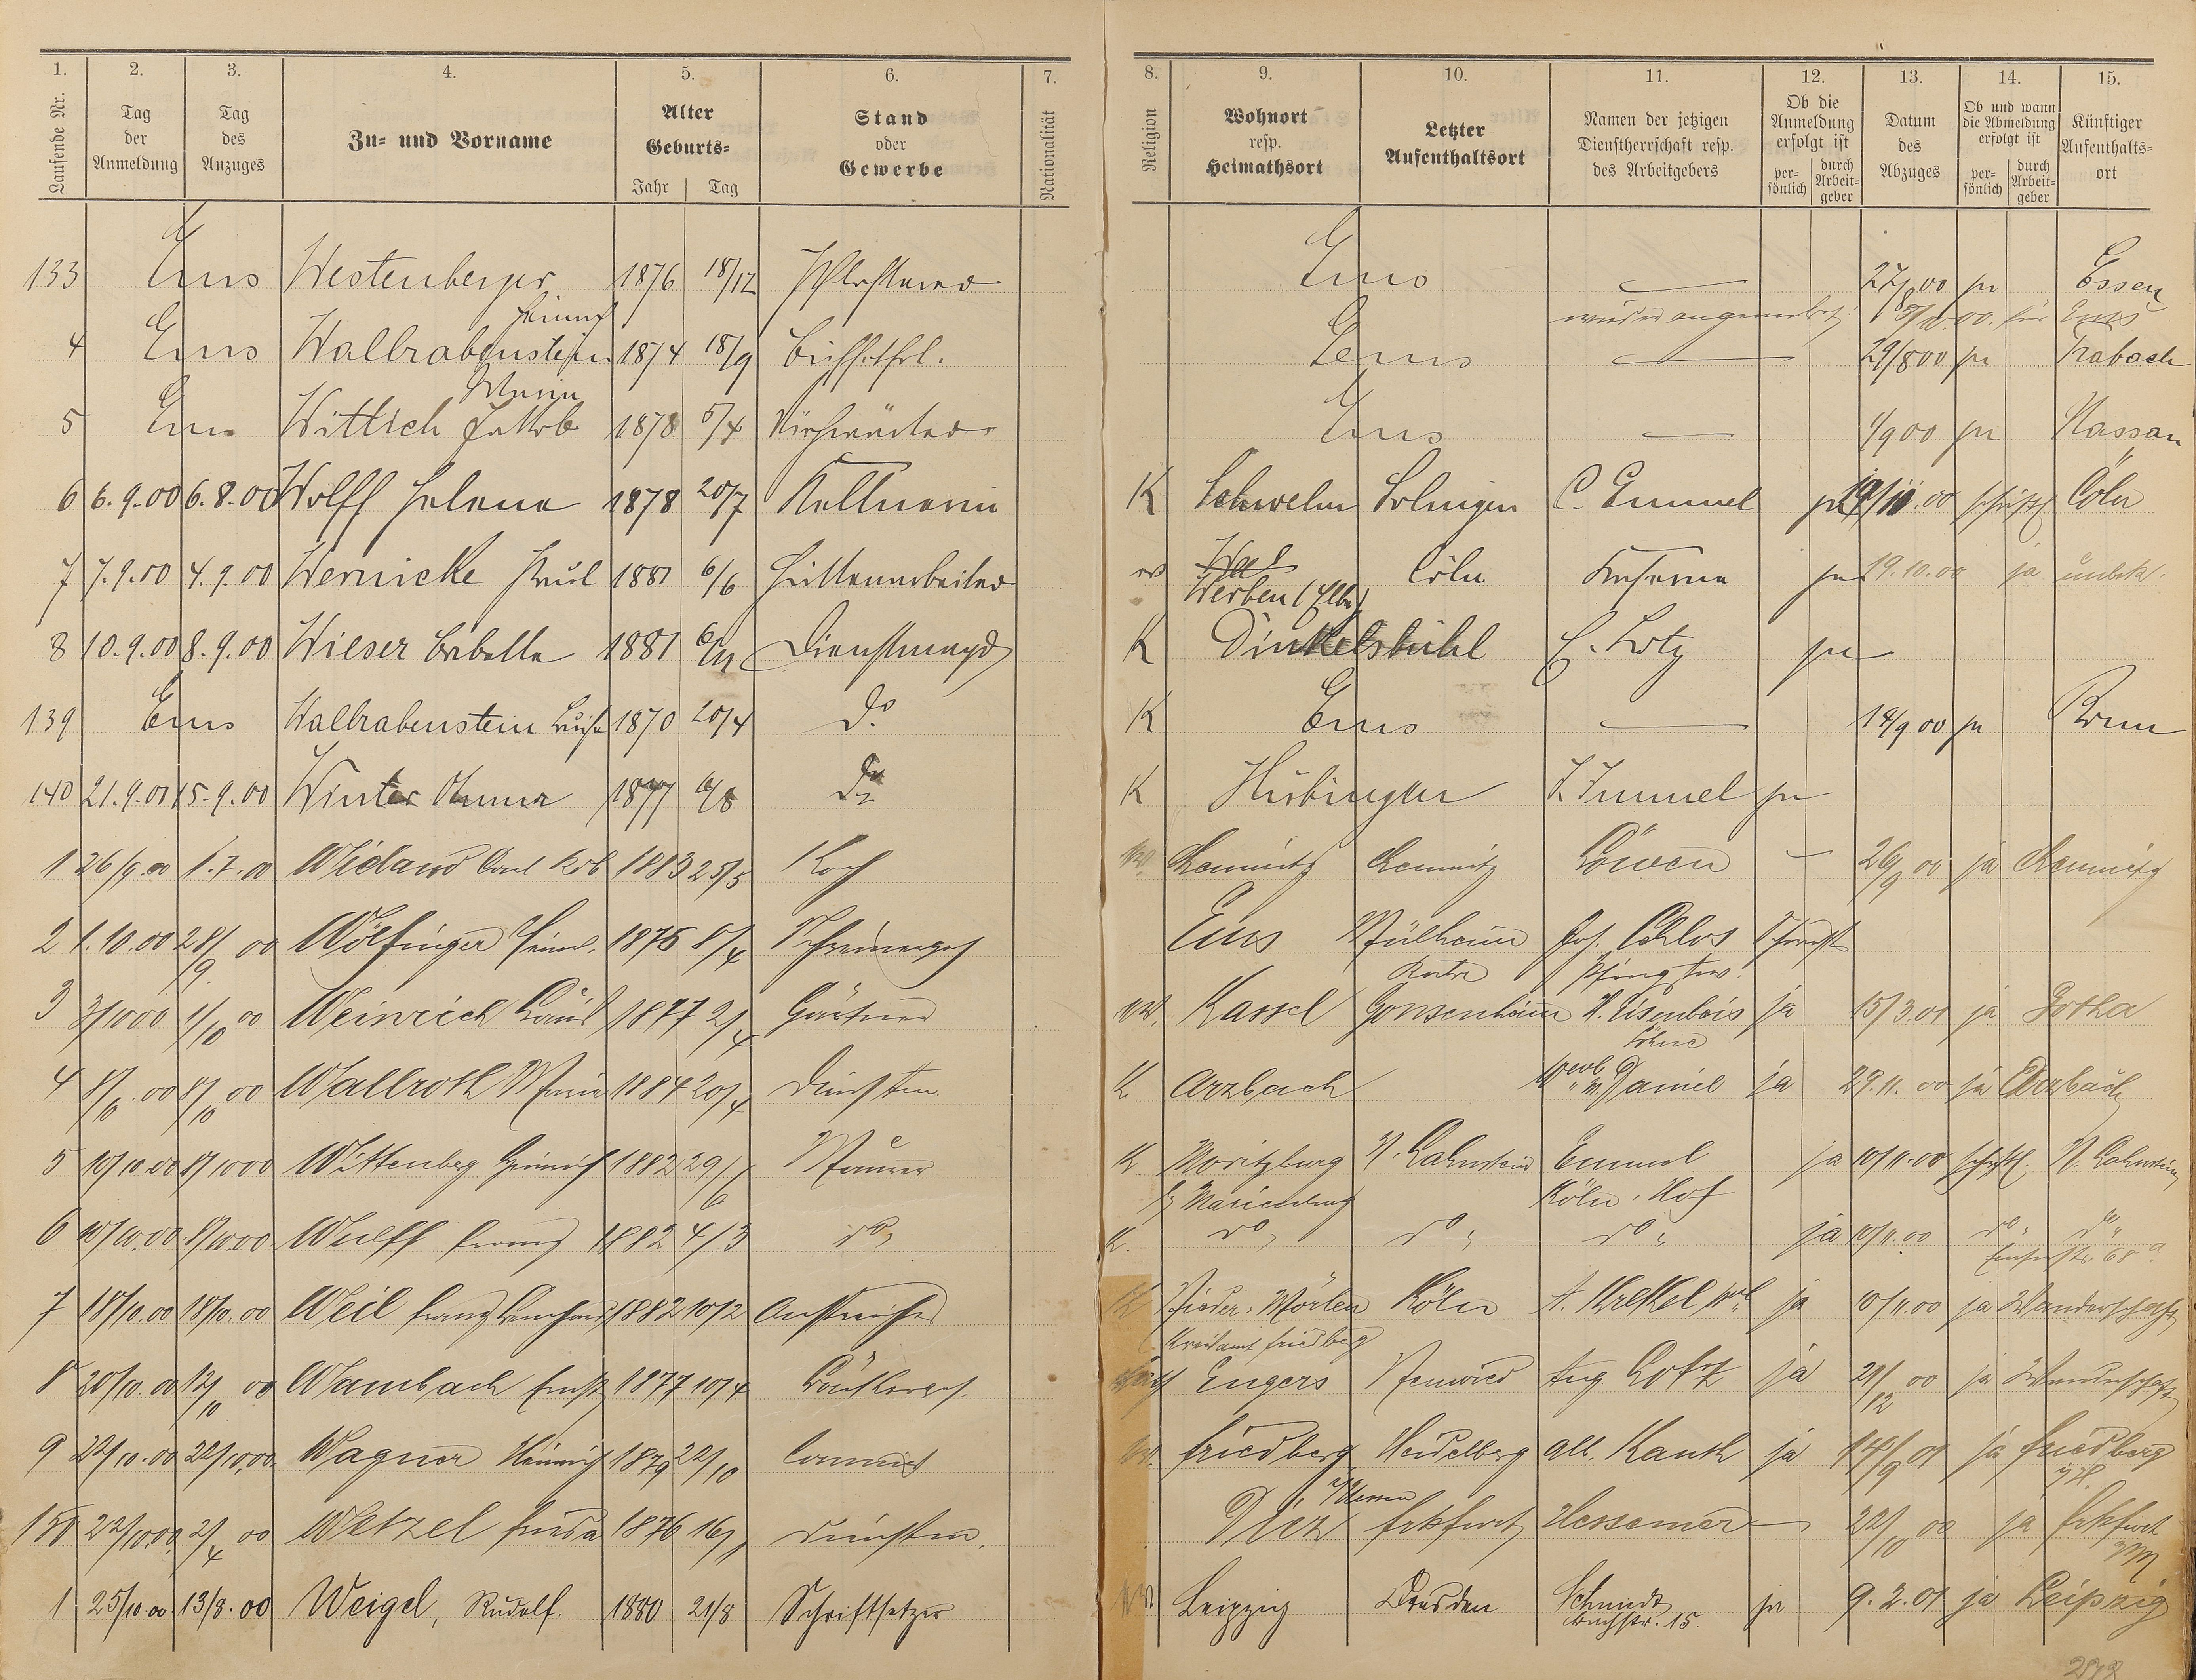 1. 2. 3. 4. 5. 6. 7. 8. 9. 10. 11. 12. 13. 14. 15.
Laufende Nr. | Tag der Anmeldung | Tag des Anzuges | Zu- und Vorname | Alter Geburts- Jahr | Tag | Stand oder Gewerbe | Nationalität | Religion | Wohnort resp. Heimathsort | Letzter Aufenthaltsort | Namen der jetzigen Dienstherrschaft resp. des Arbeitgebers | Ob die Anmeldung erfolgt ist persönlich | durch Arbeitgeber | Datum des Abzuges | Ob und wann die Abmeldung erfolgt ist persönlich | durch Arbeitgeber | Künftiger Aufenthaltsort
133 Ems Westenberger 1876 18/12 Ems — 27/8 00 ja Essen
Heinrich wieder angemeldet Ems
4 Ems Wallrabenstein 1874 18/9 Ems — 29/8 00 ja Trabach
5 Ems Wittlich Jakob 1878 5/4 Ems — 1/9 00 ja Nassau
6 6.9.00 6.8.00 Wolff Helene 1878 20/7 Kellnerin K Schwelm Solingen C. Emmel ja schriftl Cöln
7 7.9.00 4.9.00 Wernicke Paul 1881 6/6 Hüttenarbeiter ev Cöln ja 19.10.00 ja unbek.
Werben (Elbe)
8 10.9.00 8.9.00 Wieser Babette 1881 6/11 Dienstmagd K Dinkelsbühl C. Lotz ja
139 Ems Wallrabenstein Luise 1870 20/4 do K Ems — 18/9 00 ja Bonn
140 21.9.00 15.9.00 Winter Anna 1877 do K Hübingen ja
1 26/9.00 1.7.00 Wieland Carl Rob 1883 25/5 Koch ev. Chemnitz Chemnitz Löwen — 26/9 00 ja Chemnitz
2 1.10.00 28/9 00 Wölfinger Heinr. 1875 8/4 Schreinerges Ems Mülheim Jos. Schriftl
Ruhr
3 3/10 00 1/10 00 Weinrich Louis 1877 2/4 Gärtner ev. Kassel Gonsenheim H. Eisenbeis ja 15/3.01 ja Gotha
Söhne
4 8/10.00 8/10 00 Wallroth Maria 1884 20/4 Dienstm. K Arzbach Daniel ja 29.11.00 ja Arzbach
5 10/10.00 8/10 00 Wittenberg Heinrich 1882 29/6 Maurer K. Moritzburg N. Lahnstein Emmel ja 10/11.00 schriftl. N. Lahnstein
b/ Marienburg Köln. Hof
6 10/10.00 8/10.00 Wulff Franz 1882 4/3 do K. do do do ja 10/11.00 do do
7 18/10.00 18/10.00 Weil Franz Bernhard 1882 10/2 Anstreicher K Nieder-Mörlen Köln A. Krekel ja 10/11.00 ja Wanderschaft
Kreisamt Friedberg
8 20/10.00 12/10 00 Wambach Ernst 1877 10/4 Engers Neuwied Aug Lotz ja 29/12 00 ja Wanderschaft
9 22/10.00 22/10.00 Wagner Heinrich 1879 22/10 Commis ev. Friedberg Heidelberg Alb. Kauth ja 14/9 01 ja Friedberg
i/Hessen
150 22/10.00 2/4 00 Wetzel Frieda 1876 Dienstm. Diez Frkfurt Hessemer — 22/10 00 ja Frkfurt
a/M
1 25/10.00 13/8.00 Weigel, Rudolf. 1880 21/8 Schriftsetzer ev. Leipzig Dresden Schmidt ja 9.2.01 ja Leipzig
Bachstr. 15.